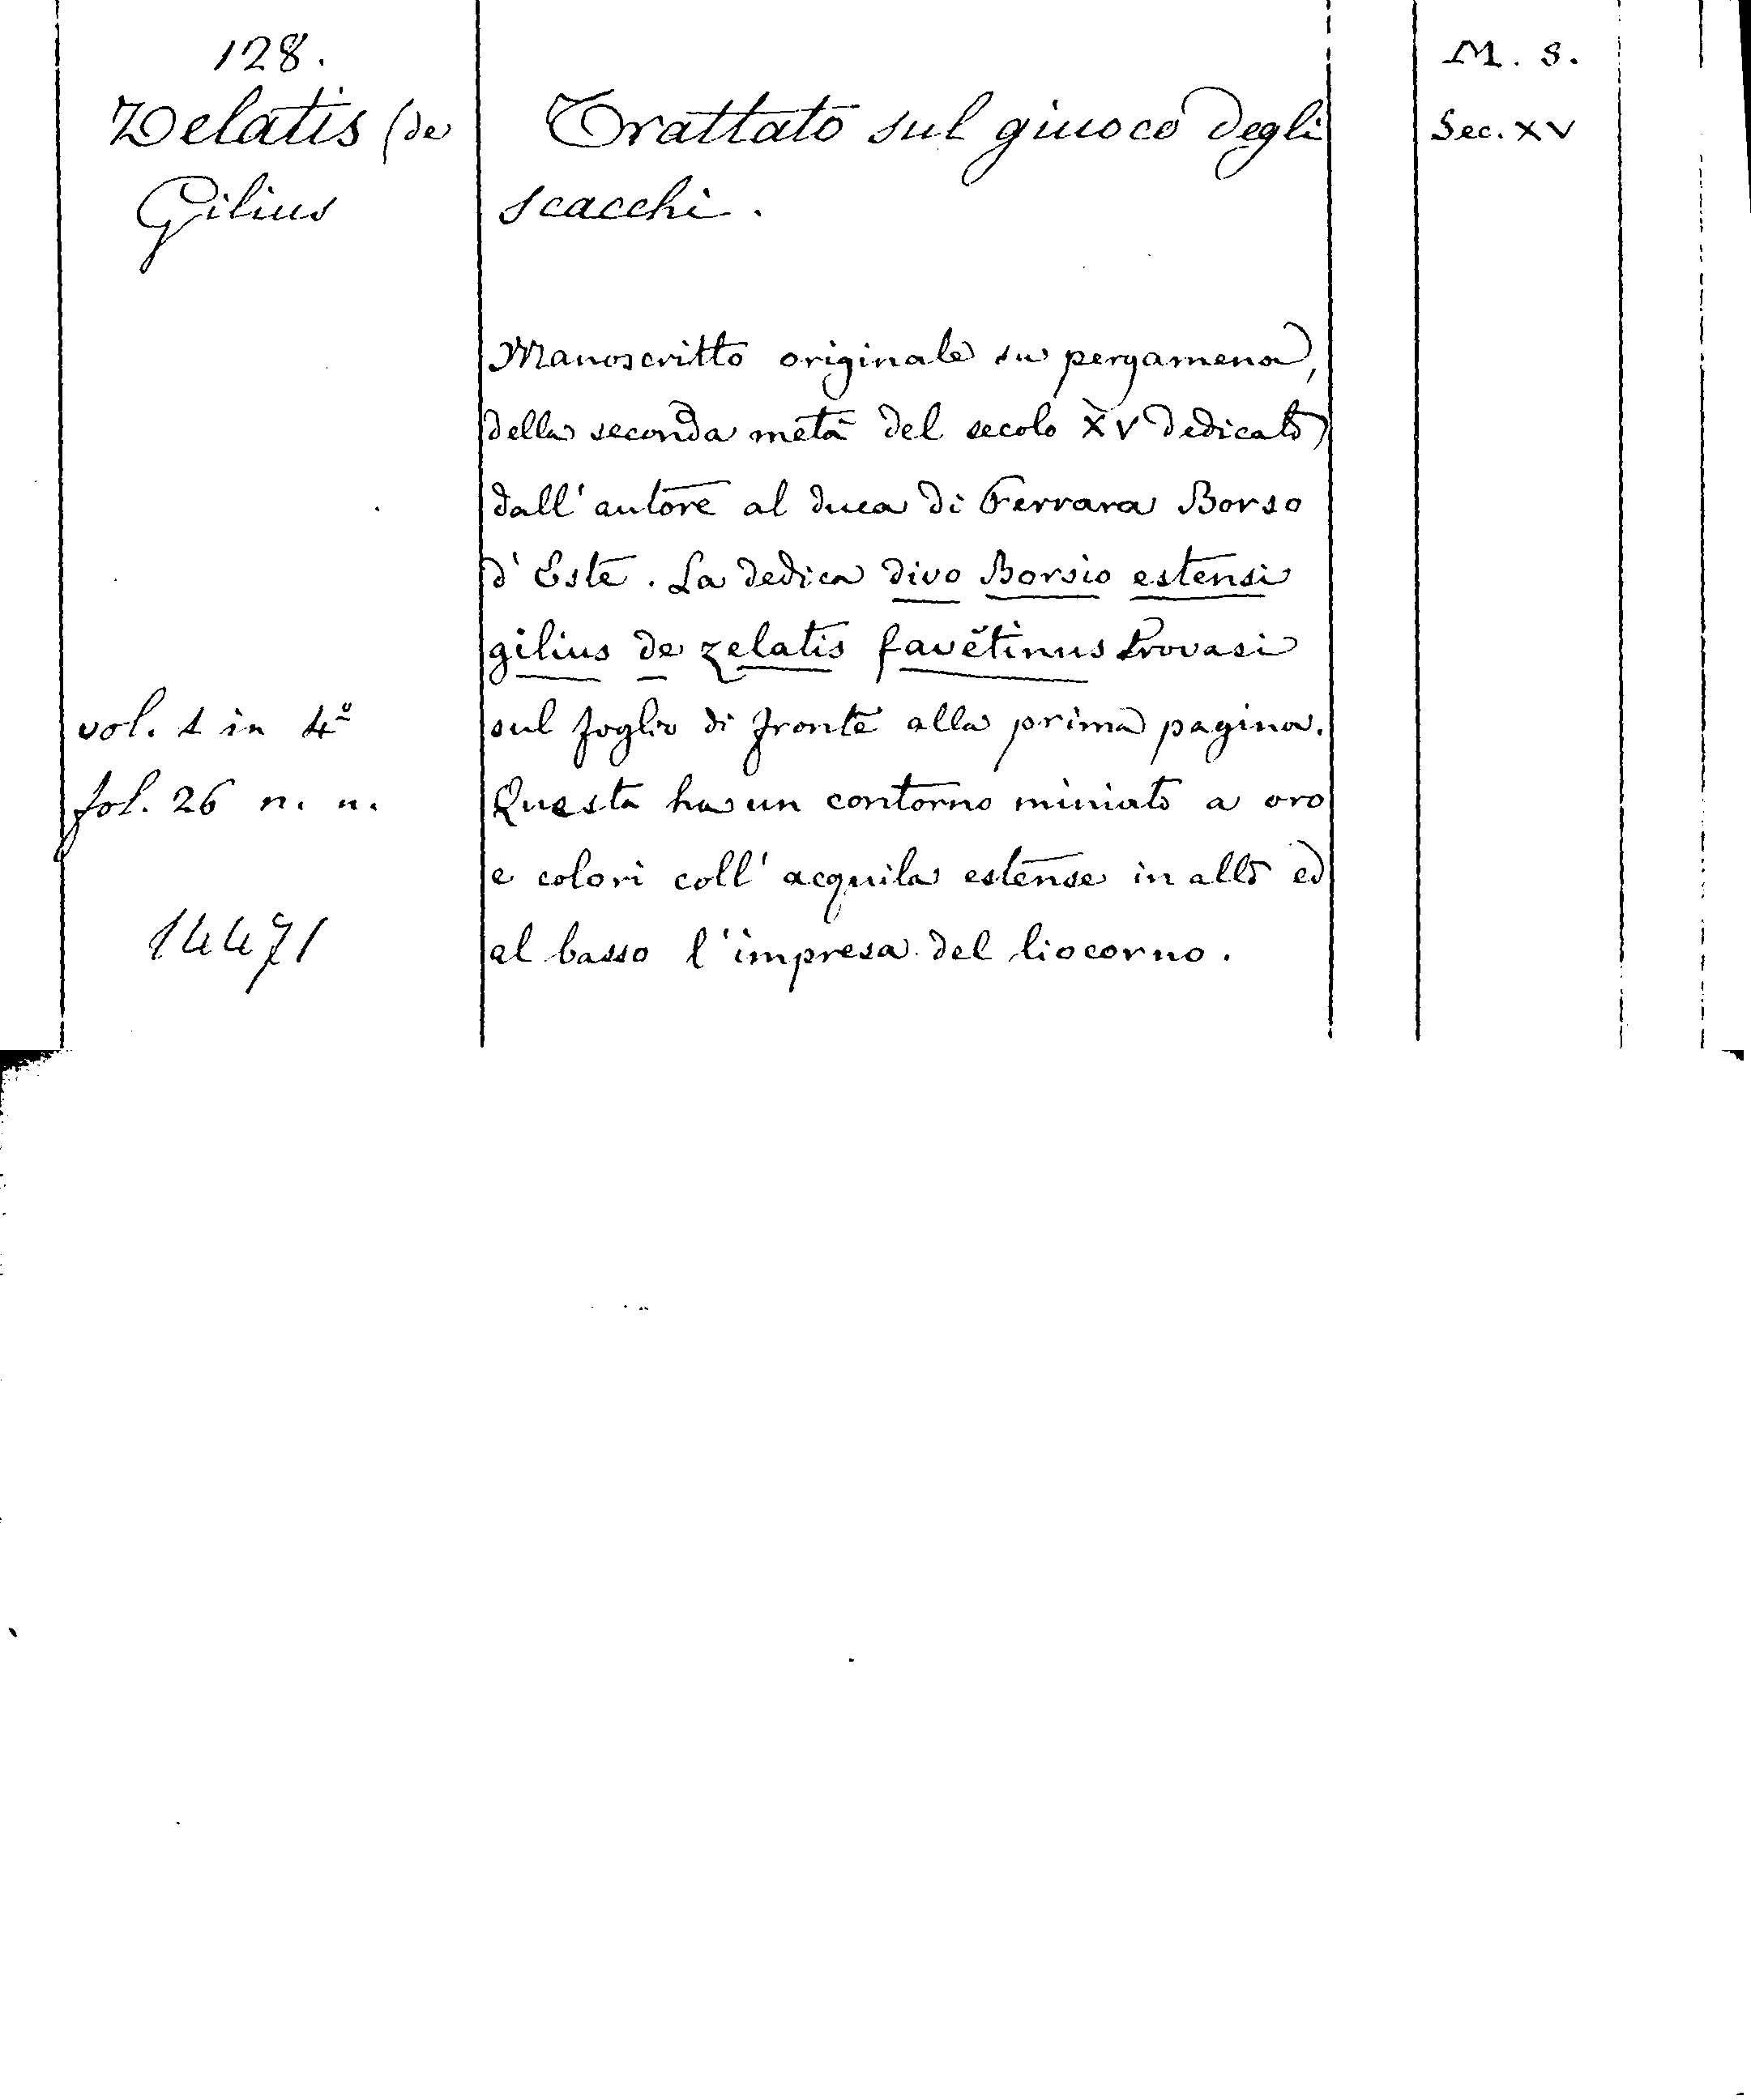 128.
Zelatis (de
Gilius
vol. 1 in 4º
fol. 26 n. n.
14471
Trattato sul giuoco degli
scacchi.
Manoscritto originale su pergamena,
della seconda metà del secolo XV dedicato
dall'autore al duca di Ferrara Borso
d'Este. La dedica divo Borsio estensi
gilius de zelatis favẽtinus trovasi
sul foglio di fronte alla prima pagina.
Questa ha un contorno miniato a oro
e colori coll'acquila estense in alto ed
al basso l'impresa del liocorno.
M. S.
Sec. XV